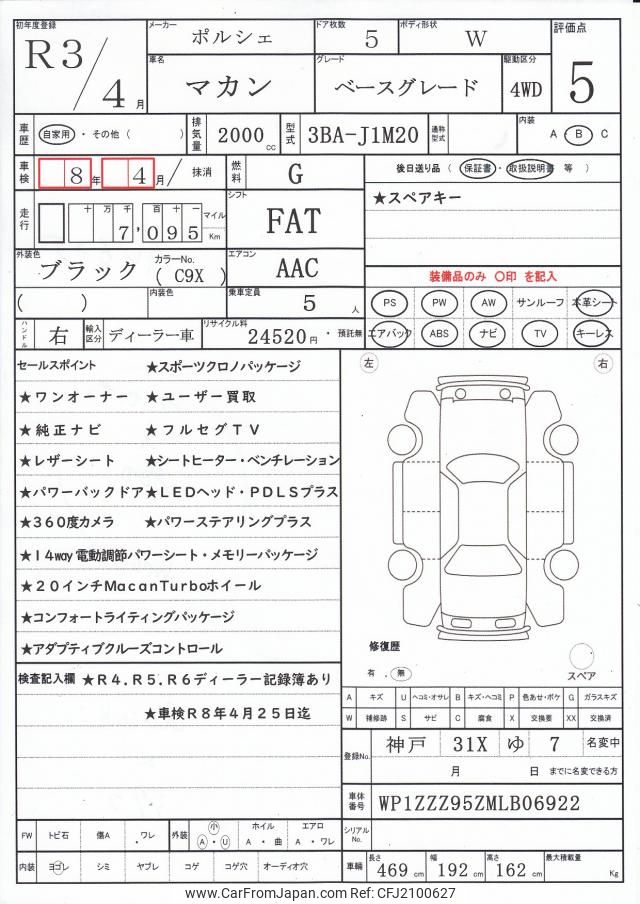 初年度登録 R3/4月 メーカー ポルシェ ドア枚数 5 ボディ形状 W 評価点 5
車名 マカン グレード ベースグレード 駆動区分 4WD
車歴 自家用・その他( ) 排気量 2000cc 型式 3BA-J1M20 通称型式 内装 A・B C
車検 8年4月/抹消 燃料 G 後日送り品(保証書・取扱説明書 等)
走行 十万千百十一 7,095 マイル Km シフト FAT ★スペアキー
外装色 ブラック カラーNo. (C9X) エアコン AAC
装備品のみ 〇印 を記入
( ) 内装色 乗車定員 5人 PS PW AW サンルーフ 本革シート
ハンドル 右 輸入区分 ディーラー車 リサイクル料 24520円・預託無 エアバック ABS ナビ TV キーレス
セールスポイント ★スポーツクロノパッケージ 左 右
★ワンオーナー ★ユーザー買取
★純正ナビ ★フルセグTV
★レザーシート ★シートヒーター・ベンチレーション
★パワーバックドア★LEDヘッド・PDLSプラス
★360度カメラ ★パワーステアリングプラス
★14way電動調節パワーシート・メモリーパッケージ
★20インチMacanTurboホイール
★コンフォートライティングパッケージ
★アダプティブクルーズコントロール
修復歴
有.無 スペア
検査記入欄 ★R4.R5.R6ディーラー記録簿あり
★車検R8年4月25日迄
A キズ U ヘコミ・オサレ B キズ・ヘコミ P 色あせ・ボケ G ガラスキズ
W 補修跡 S サビ C 腐食 X 交換要 XX 交換済
登録No. 神戸 31X ゆ 7 名変中
月 日 までに名変できる方
車体番号 WP1ZZZ95ZMLB06922
FW トビ石 傷A ・ワレ 外装 小 A・U ホイル A・曲 エアロ A・ワレ シリアルNo.
内装 ヨゴレ シミ ヤブレ コゲ コゲ穴 オーディオ穴 車輛 長さ 469cm 幅 192cm 高さ 162cm 最大積載量 Kg
www.CarFromJapan.com Ref: CFJ2100627